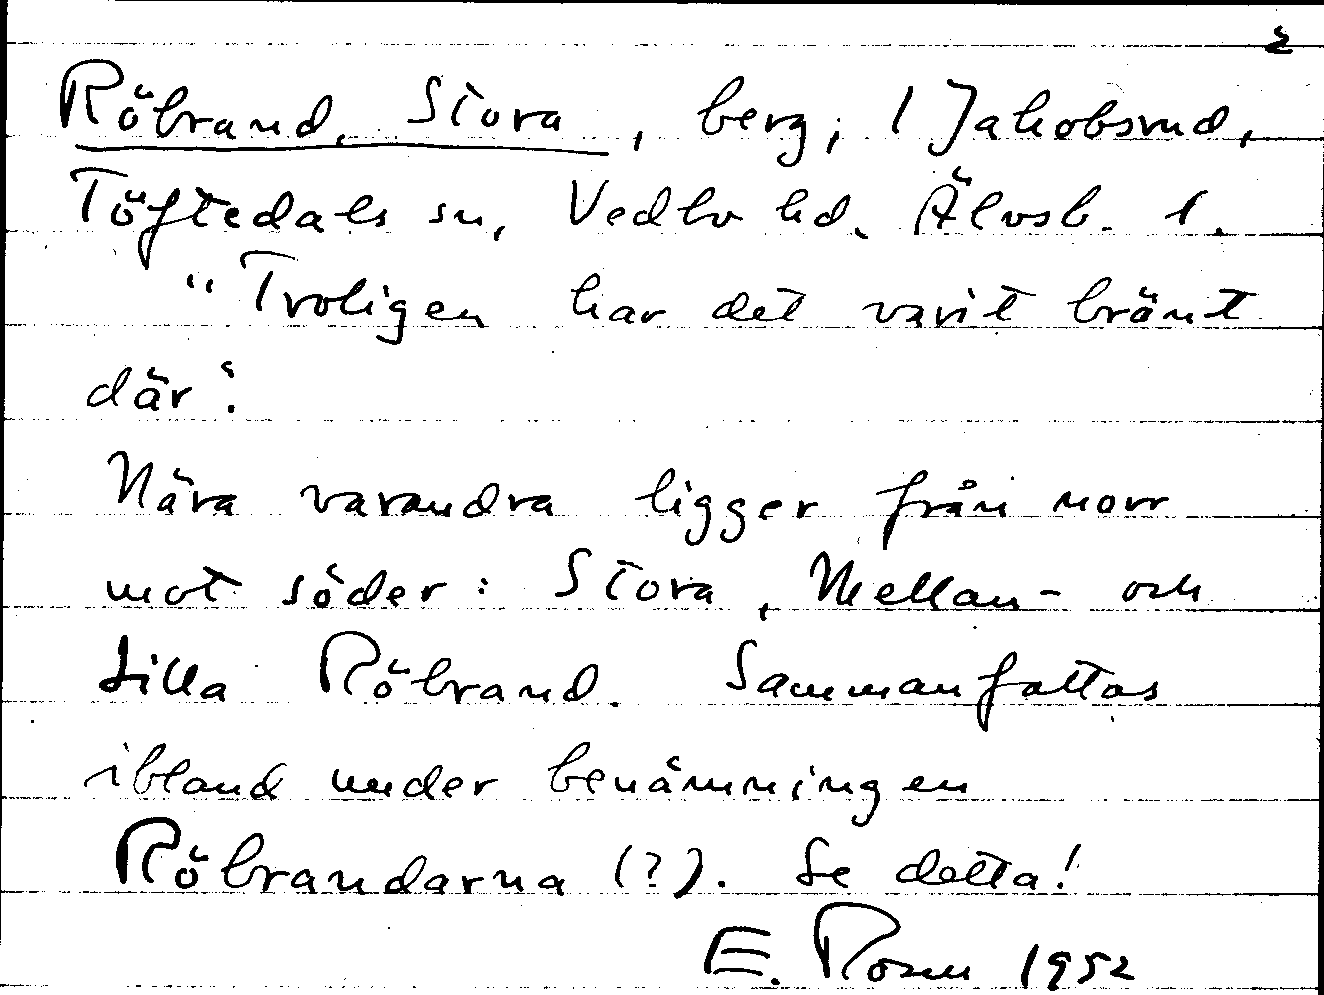 2
Röbrand, Stora, berg; 1 Jakobsrud,
Töftedals sn, Vedbo hd. Älvsb. l.
"Troligen har det varit bränt
där".
Nära varandra ligger från norr
mot söder: Stora, Mellan- och
Lilla Röbrand. Sammanfattas
ibland under benämningen
Röbrandarna (?). Se detta!
E. Rosen 1952